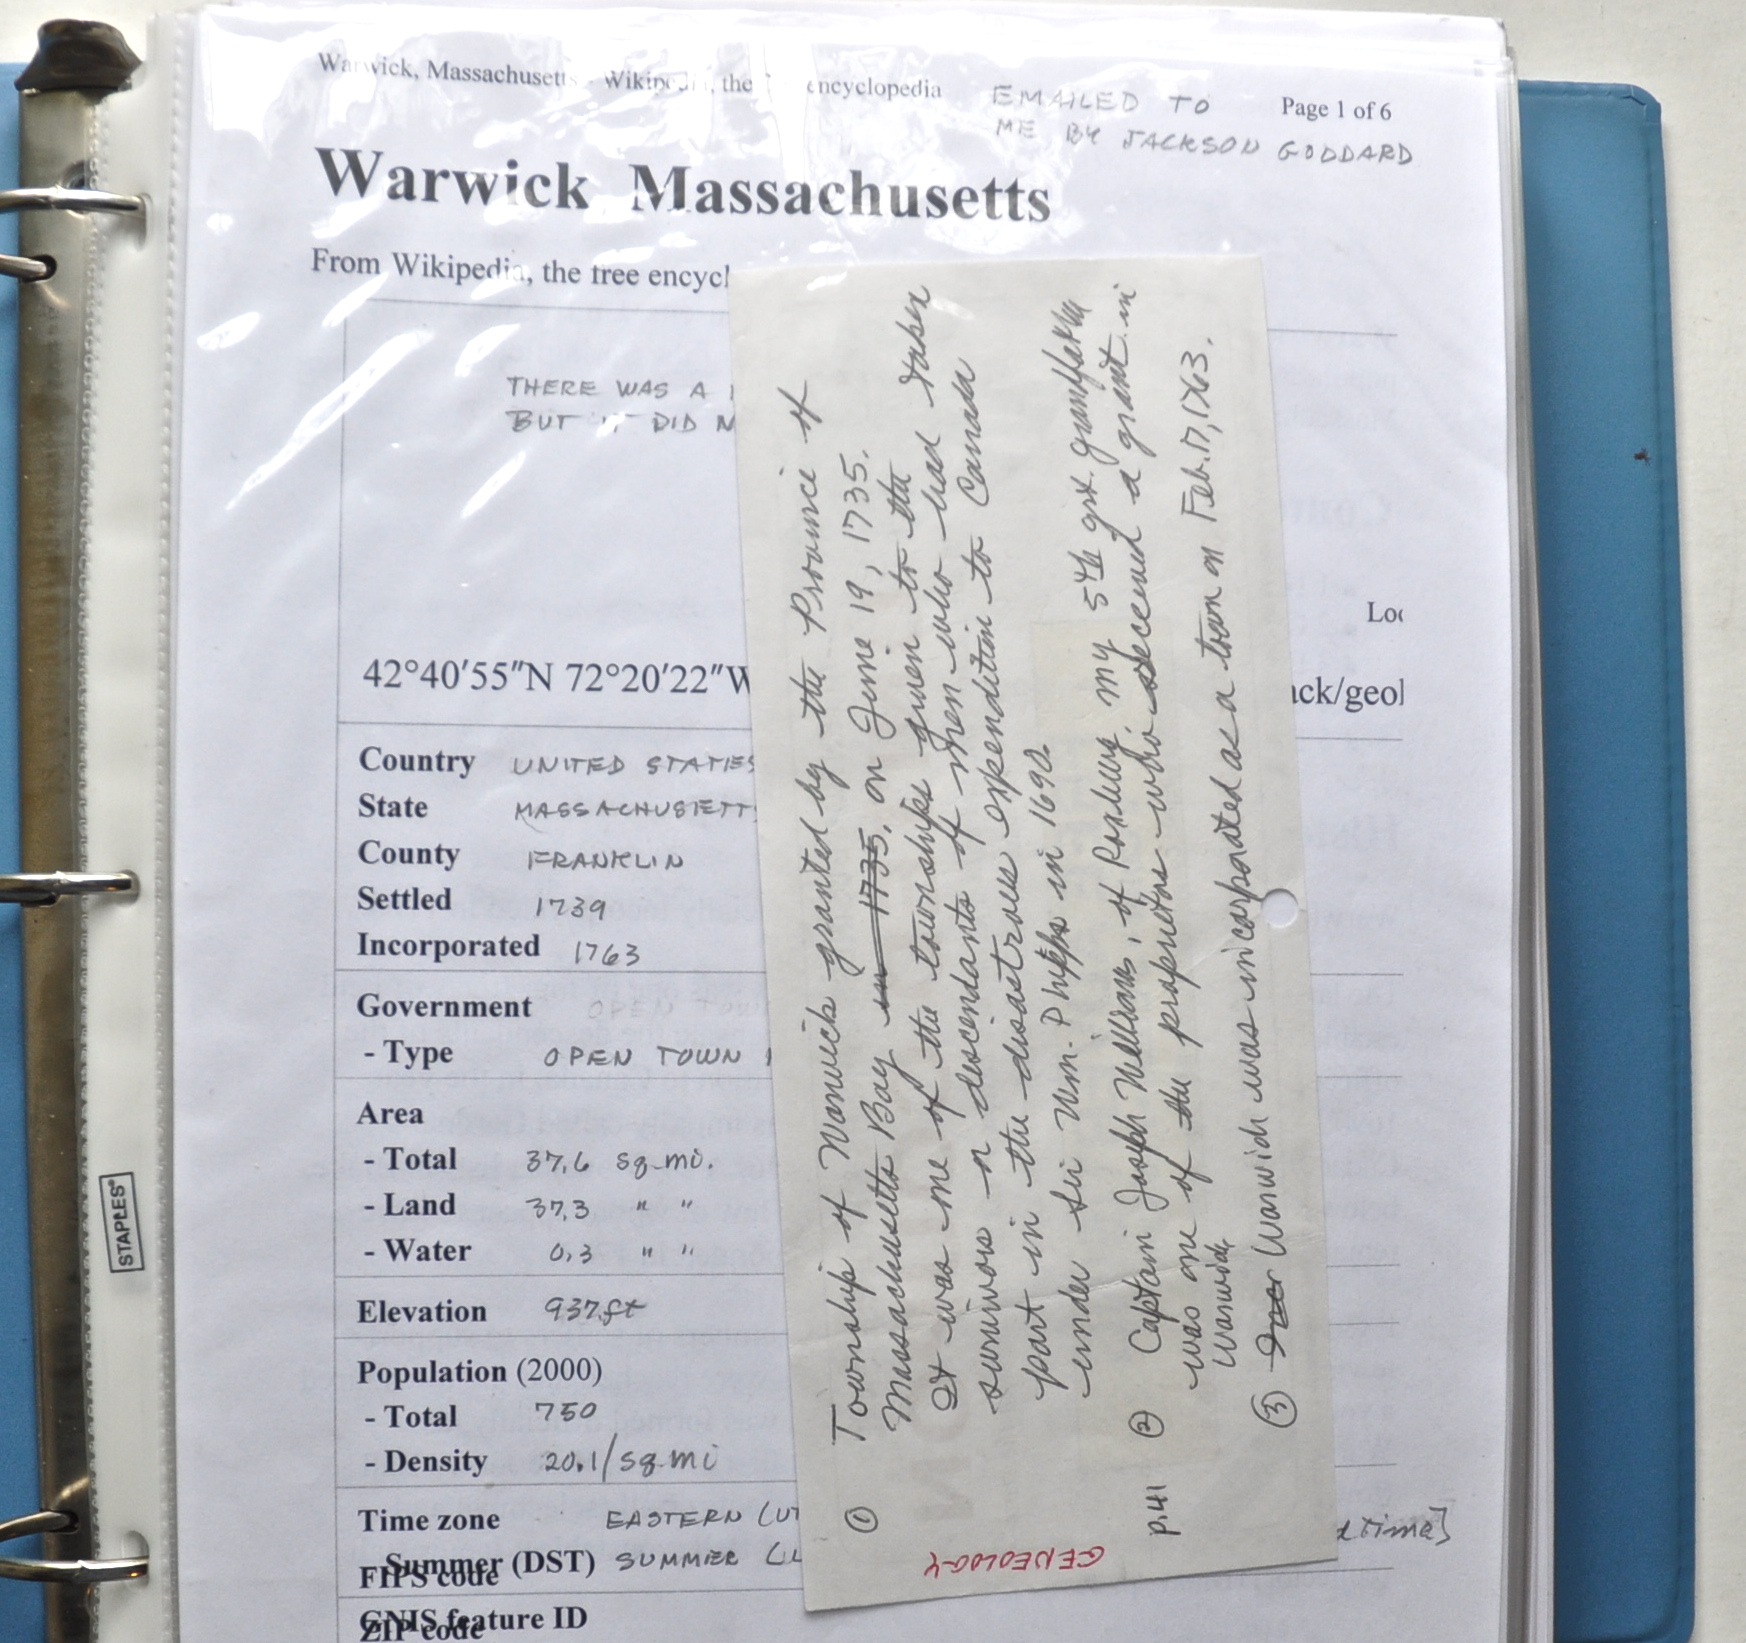 Warwick, Massachusetts - Wikipedia, the encyclopedia
Page 1 of 6
EMAILED TO
ME BY JACKSON GODDARD
Warwick Massachusetts
From Wikipedia, the free encycl
THERE WAS A
BUT IT DID N
Loc
42°40′55″N 72°20′22″W
ack/geol
Country UNITED STATES
State MASSACHUSETTS
County FRANKLIN
Settled 1739
Incorporated 1763
Government OPEN TOWN
- Type OPEN TOWN
Area
- Total 37.6 sq. mi.
- Land 37.3 " "
- Water 0.3 " "
Elevation 937 ft
Population (2000)
- Total 750
- Density 20.1/sq. mi
Time zone EASTERN (UT
dtime]
Summer (DST) SUMMER (U
FIPS code
GNIS feature ID
ZIP code
STAPLES
① Township of Warwick granted by the Province of
Massachusetts Bay in 1735, on June 19, 1735.
It was one of the townships given to the
survivors or descendants of men who had taken
part in the disastrous expendition to Canada
under Sir Wm. Phipps in 1690.
p.41 ② Captain Joseph Williams, of Roxbury my 5th grt. grandfather
was one of the proprietors who received a grant in
Warwick.
③ Warwick was incorporated as a town on Feb. 17, 1763.
GENEOLOGY